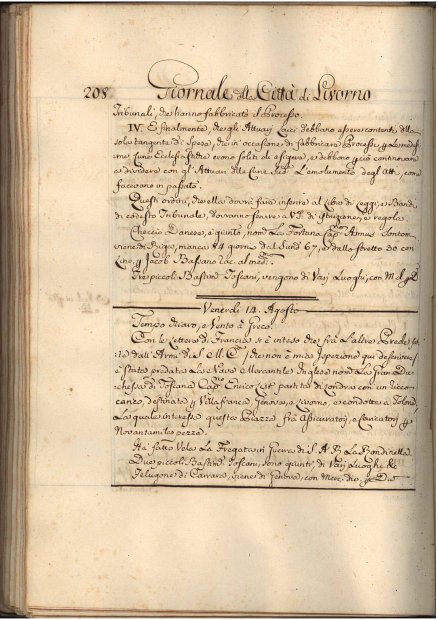 208 Giornale della Città di Livorno
Tribunali, che hanno fabbricato il Processo.
IV. E finalmente, che gli Attuarj Laici debbano essere contenti della
sola tangente di Spese, che in occasione di fabbricare Processi, le medesi-
me Curie Ecclesiastiche erono soliti di esigere, e debbono continovare
a dividere con gl'Attuarj delle Curie l'emolumento degl'Atti, come
facevano in passato.
Questi ordini, che ella dovrà fare inserire al libro di Leggi, e Bandi
di cotesto Tribunale, dovranno servire a V.S. d'istruzione, e regola.
Danese, è giunto, nom. La Fortuna Cap.
viene da manca 24 giorni dal Sund 67, e dallo stretto 30 con
Lino, Jacob Bassano Rac. al med.
Tre piccoli Bastim. Toscani, vengono di Varj Luoghi, con
Venerdì 14. Agosto
Tempo chiaro, e Vento à Greco.
Con le Lettere di Francia si è inteso che frà l'altre Prede fat-
te dall'Armi di S. M. C. che non è mia Ispezione qui descrivere
è stata predata La Nave Mercantile Inglese nom. La Gran Du-
chessa di Toscana Cap. Enrico partita di Londra con un ricco
carico, destinata Villafranca, Genova, e Livorno, e condotta a Tolone
La quale interessa questa Piazza frà Assicuratori, e Caricatori
Novantamile pezze.
Ha fatto Vela La Fregata in Guerra di S. A. R. La Rondinella
Due piccoli Bastim. Toscani, sono giunti di Varj Luoghi &
Pelugone di Carrara, viene di Genova, con Merc. die,